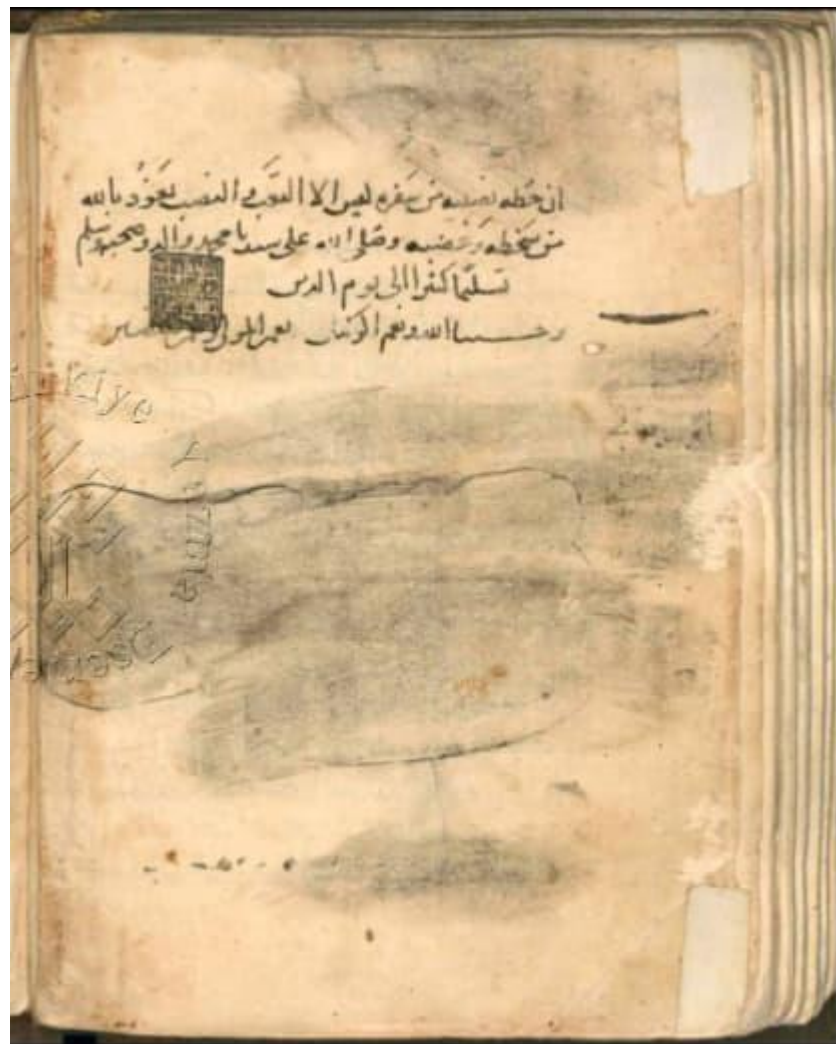 ان حظه نصيبه من سفره ليس الا التعب والنصب نعوذ بالله
من سخطه وغضبه وصلى الله على سيدنا محمد واله وصحبه وسلم
تسليما كثيرا الى يوم الدين
وحسبنا الله ونعم الوكيل نعم المولى